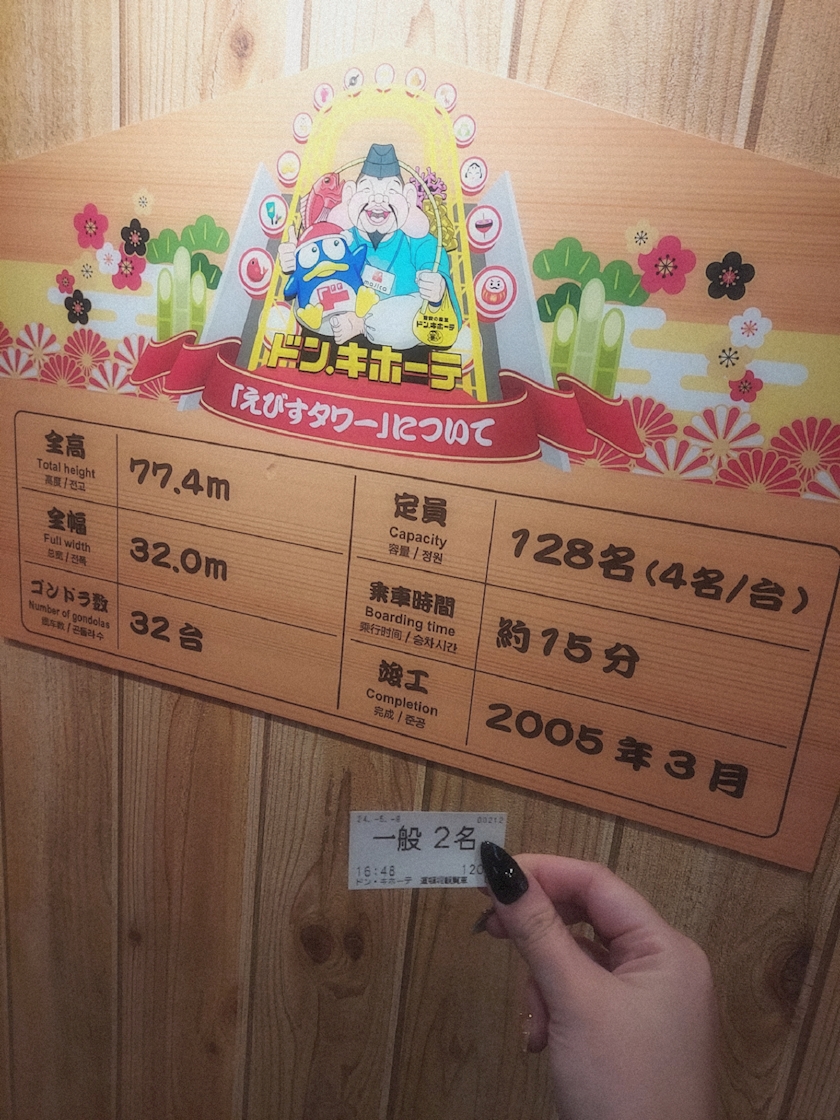 ドン.キホーテ
「えびすタワー」について
全高
Total height
高度 / 전고
77.4m
全幅
Full width
总宽 / 전폭
32.0m
ゴンドラ数
Number of gondolas
곤돌라 수
32台
定員
Capacity
容量 / 정원
128名(4名/台)
乗車時間
Boarding time
乘行时间 / 승차시간
約15分
竣工
Completion
完成 / 준공
2005年3月
一般 2名
16:48
ドン・キホーテ 道頓堀観覧車